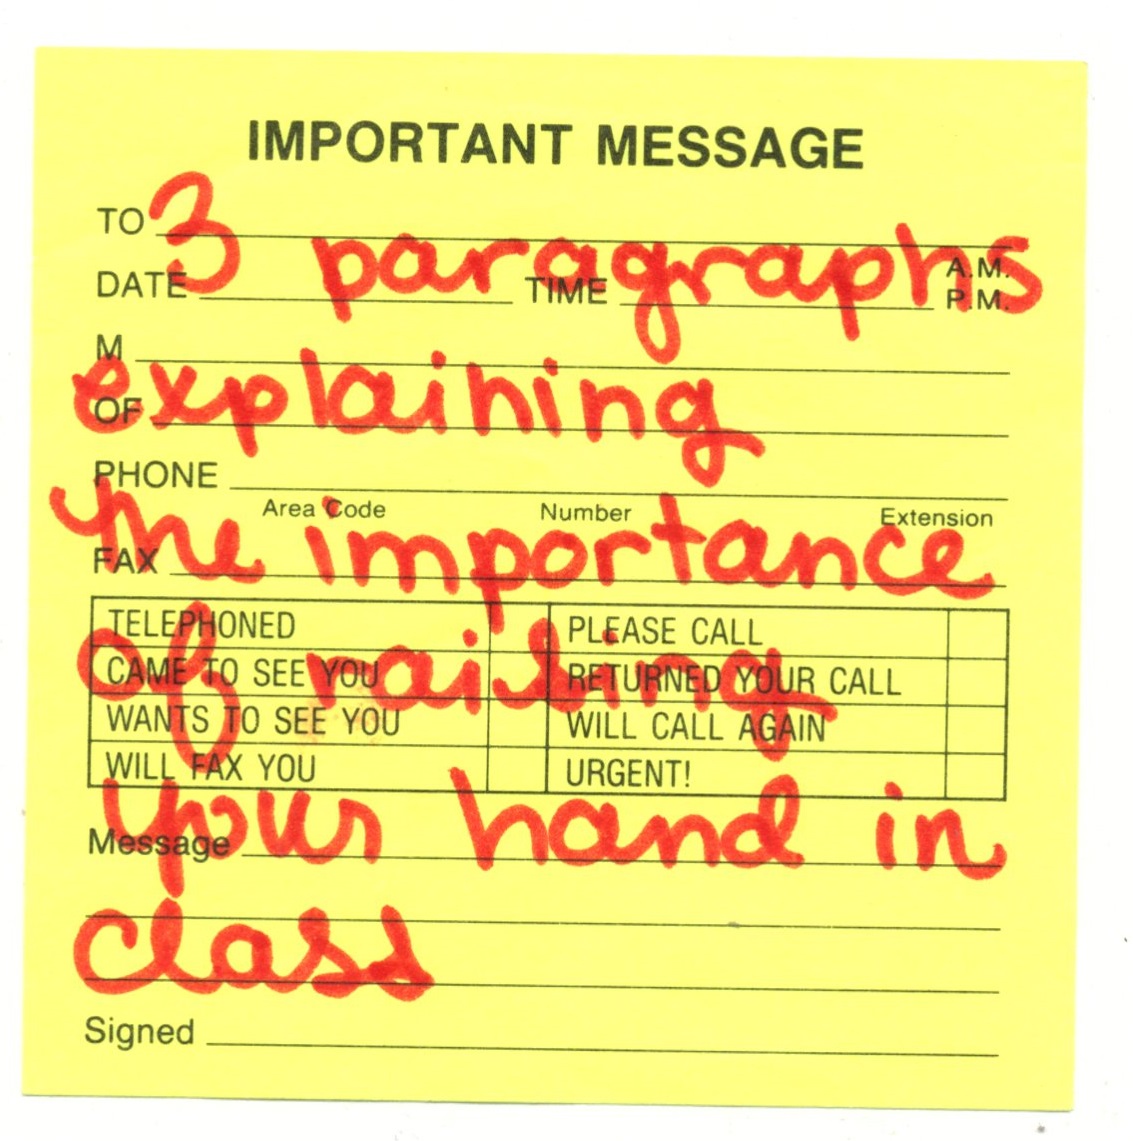 IMPORTANT MESSAGE
TO
3 paragraphs
DATE TIME A.M.
P.M.
M
explaining
OF
PHONE
Area Code Number Extension
the importance
FAX
TELEPHONED PLEASE CALL
of raising
CAME TO SEE YOU RETURNED YOUR CALL
WANTS TO SEE YOU WILL CALL AGAIN
WILL FAX YOU URGENT!
your hand in
Message
class
Signed